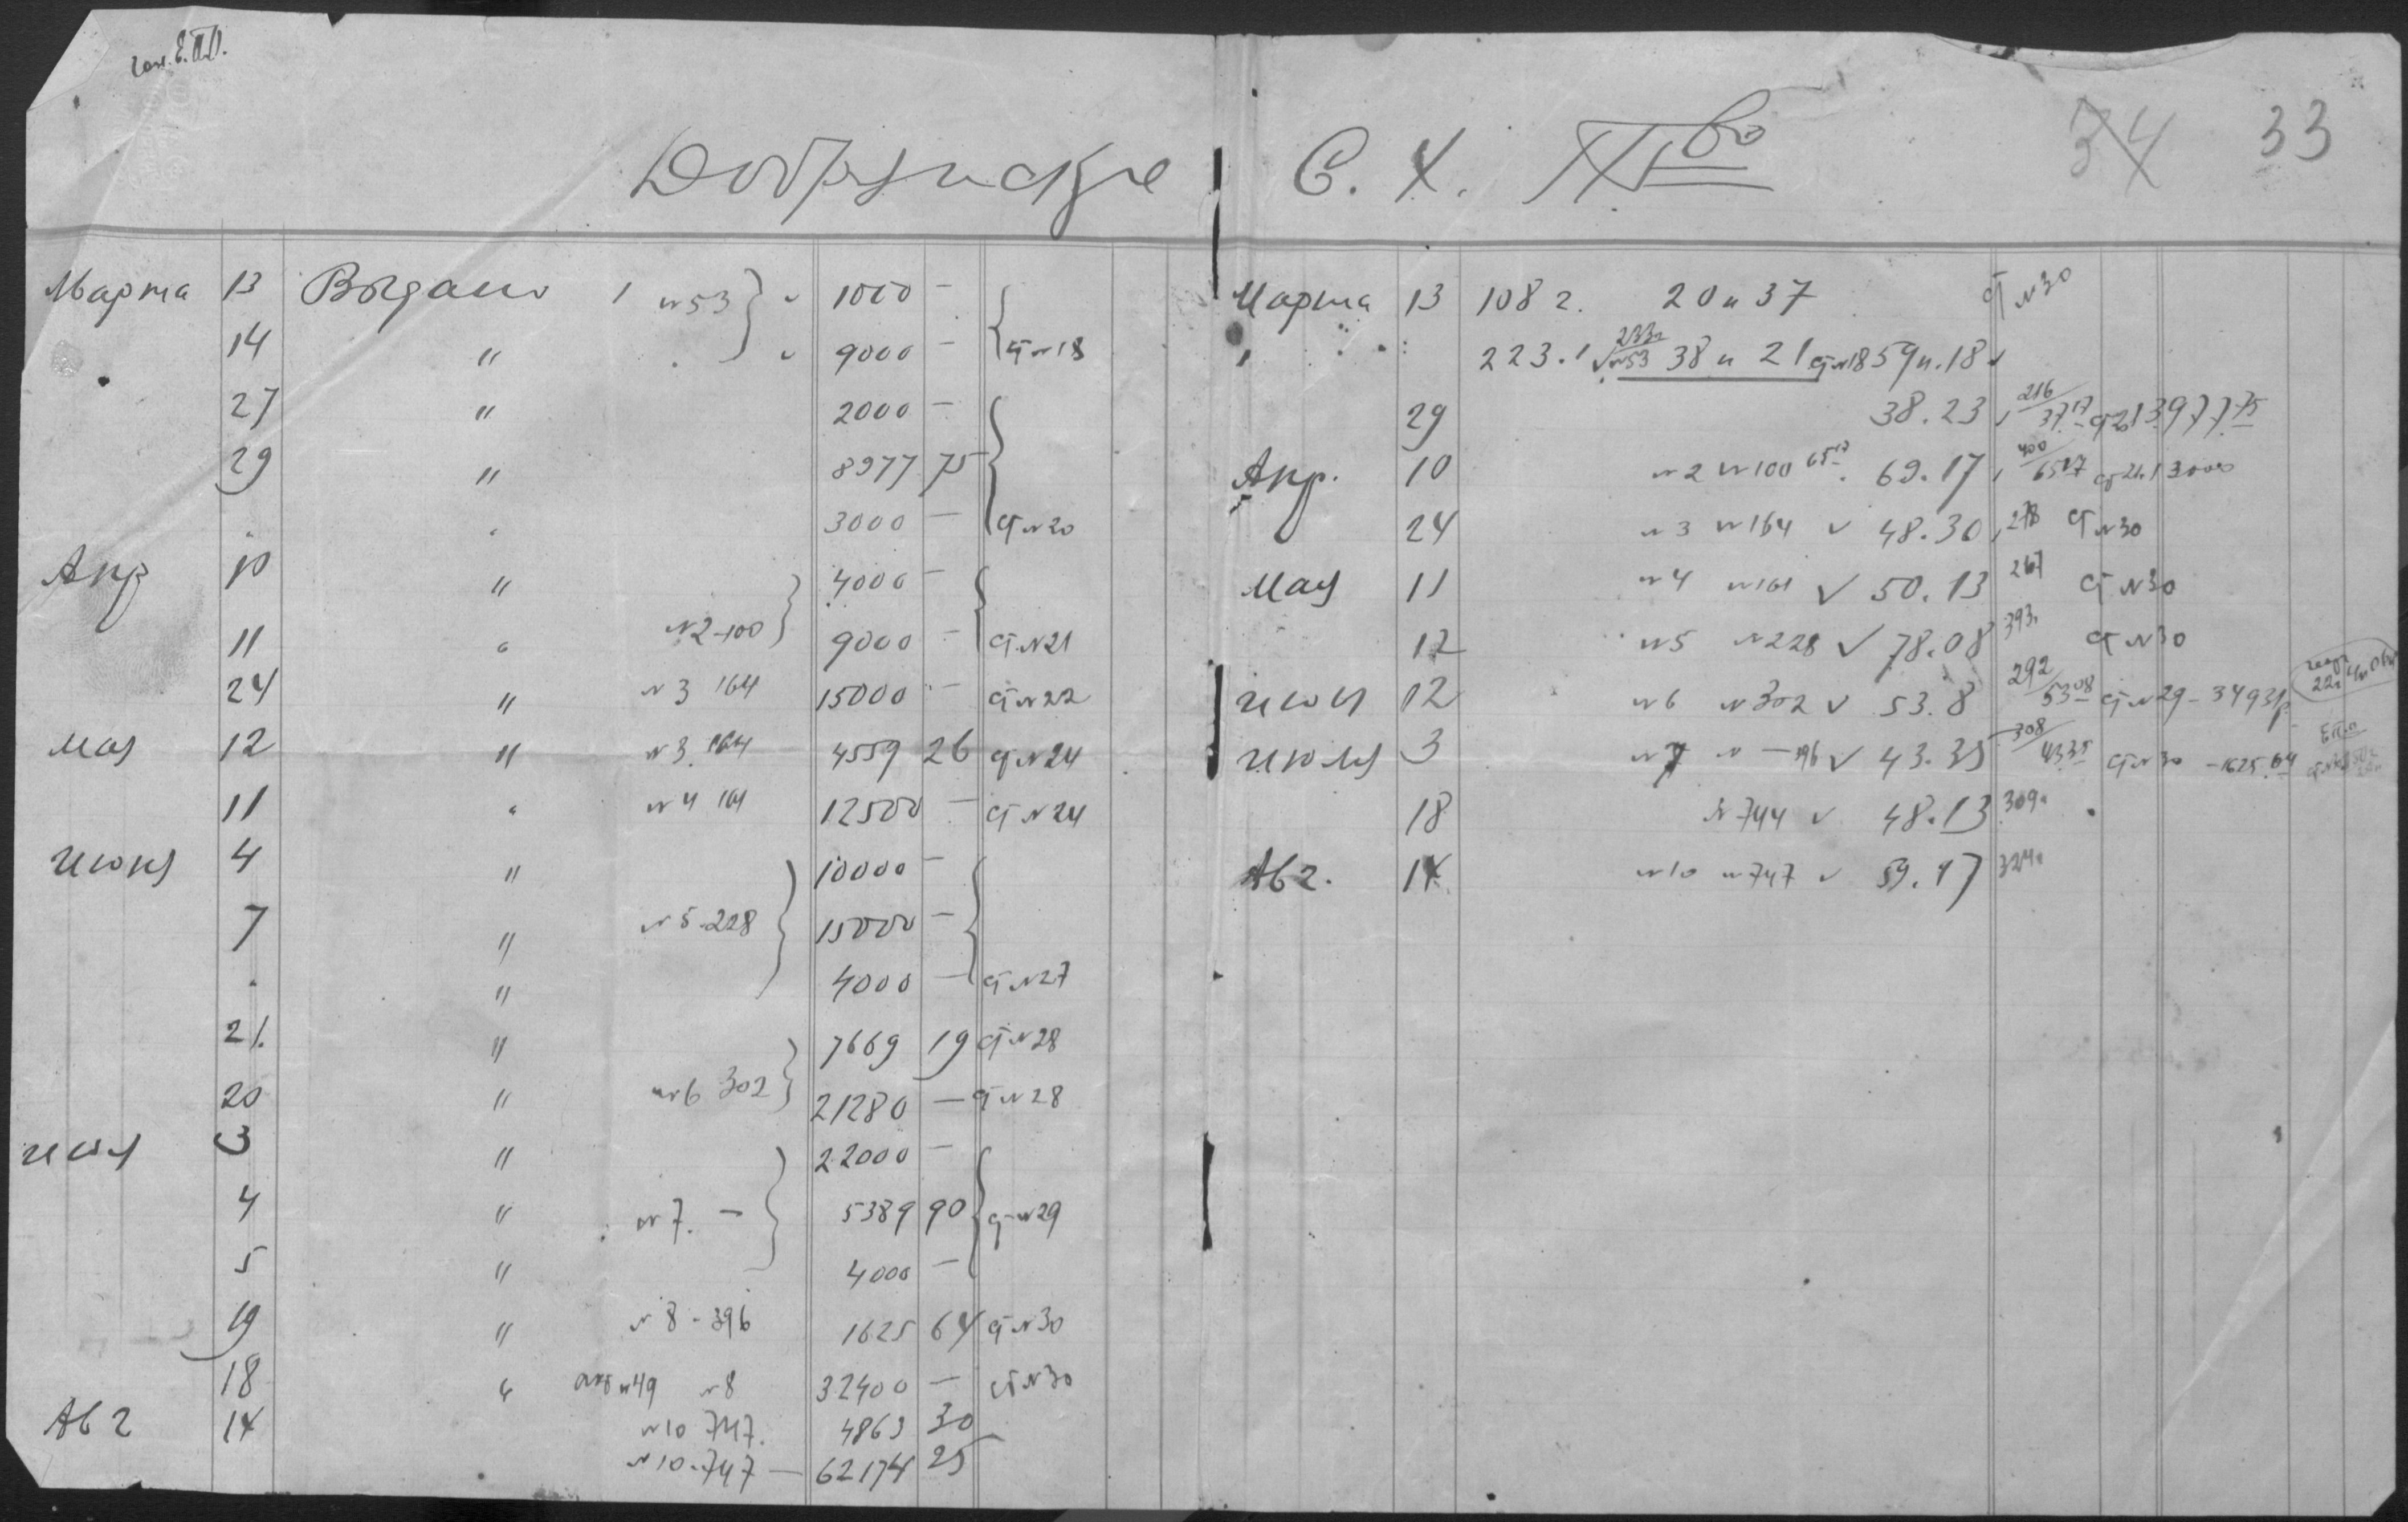 Добрянское С. Х. Т<sup>во</sup>
34 33
Марта 13 Выдано 1 №53 1000 —
14 " 9000 — ст №18
27 " 2000 —
29 " 8977 75
" 3000 — ст №20
Апр 10 " 4000 —
11 " №2-100 9000 — ст №21
24 " №3 164 15000 — ст №22
Мая 12 " №3 164 4559 26 ст №24
11 " №4 161 12500 — ст №24
Июня 4 " 10000 —
7 " №5-228 15000 —
" 4000 — ст №27
21. " 7669 19 ст №28
20 " №6 302 21280 — ст №28
июля 3 " 22000 —
4 " №7. — 5389 90 ст №29
5 " 4000 —
19 " №8-396 1625 64 ст №30
18 " №49 №8 32400 — ст №30
Авг 14 №10 747. 4863 30
№10-747 — 62174 25
Марта 13 108 г. 20 и 37 ст №30
" 223.1 √ 233 №53 38 и 21 ст №18 59 и.18
29 38.23 216 37.17 ст 21 3977 75
Апр. 10 №2 №100 65 17 69.17 400 65 17 ст 21. 13000
24 №3 №164 √ 48.30 278 ст №30
Мая 11 №4 №161 √ 50.13 267 ст №30
12 №5 №228 √ 78.08 393 ст №30
июня 12 №6 №302 √ 53.8 292 53 08 ст №29-34931р
июля 3 №7 № — 396 √ 43.35 308 43 35 ст №30 -1625.64
18 №744 √ 48.13 309
Авг. 14 №10 №747 √ 59.17 324